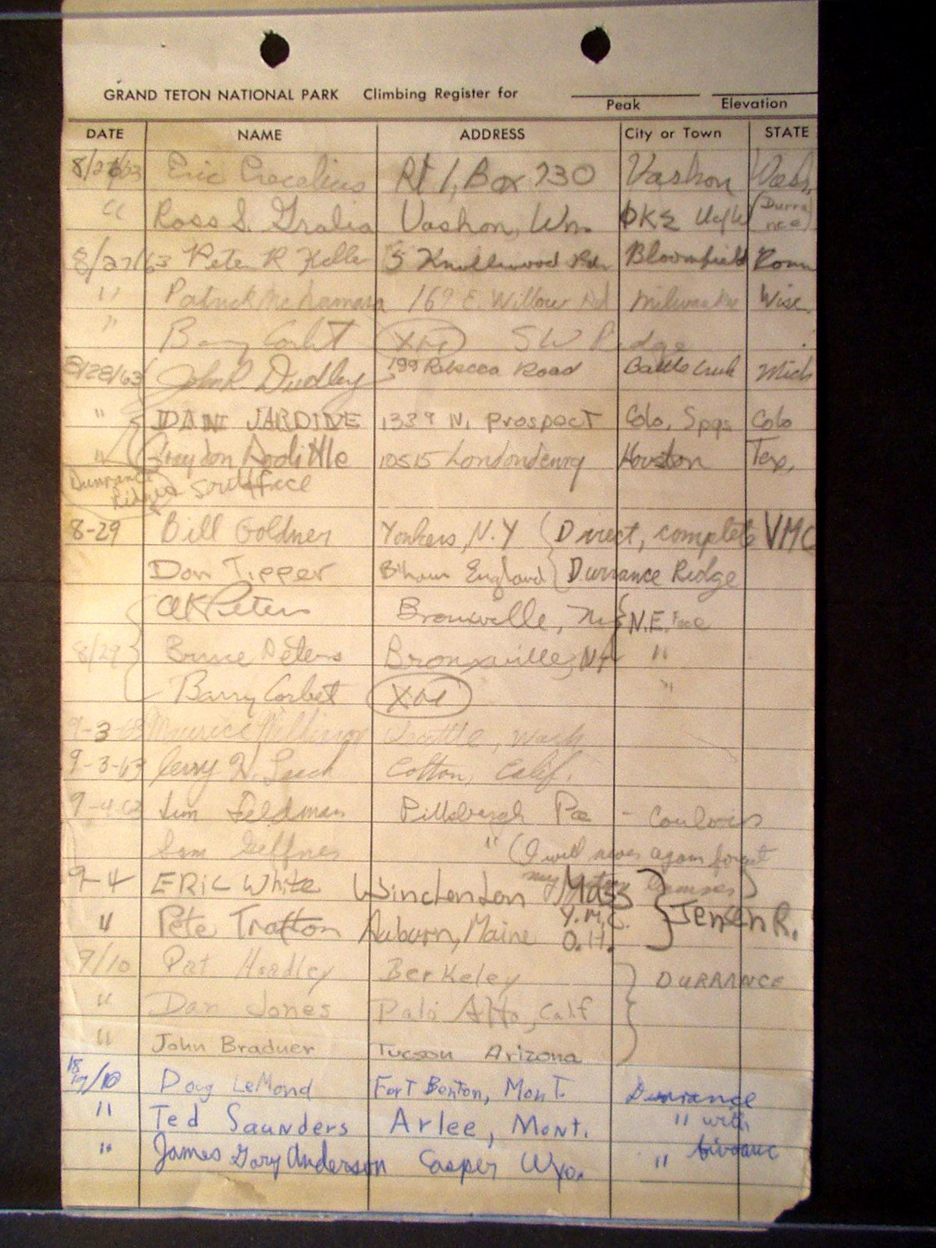 GRAND TETON NATIONAL PARK Climbing Register for
Peak Elevation
DATE NAME ADDRESS City or Town STATE
Eric Rt 1, Box 730 Vashon Wash.
" Ross S. Vashon, Wn. (Durrance)
8/27/63 Peter R Keller 5 Knollwood Bloomfield
" Patrick McNamara 169 E. Willow Rd Milwaukee Wisc.
" Barry Corbet XM SW Ridge
8/28/63 John R. Dudley 199 Rebecca Road Battle Creek Mich
" DAN JARDINE 1339 N. Prospect Colo. Spgs Colo
" Graydon Doolittle 10515 Londonderry Houston Tex.
Durrance Ridge
8-29 Bill Goldner Yonkers, N.Y (Direct, complete VMC
Don Tipper B'ham England Durrance Ridge
Peters Bronxville, N.E. Face
8/29 Bruce Peters Bronxville, NY "
Barry Corbet "
9-3-63 Maurice Seattle, Wash
9-3-63 Jerry Colton, Calif.
9-4-63 Jim Feldman Pittsburgh Pa - Couloirs
Sam " (I will never again forget
my
9-4 ERic White Winchendon Mass Jensen R.
" Pete Tratton Auburn, Maine Y.M.C. O.H.
9/10 Pat Hoadley Berkeley DURRANCE
" Dan Jones Palo Alto, Calf
" John Braduer Tucson Arizona
Doug LeMond Fort Benton, Mont. Durrance
" Ted Saunders Arlee, Mont. " with
" James Gary Anderson Casper Wyo. "